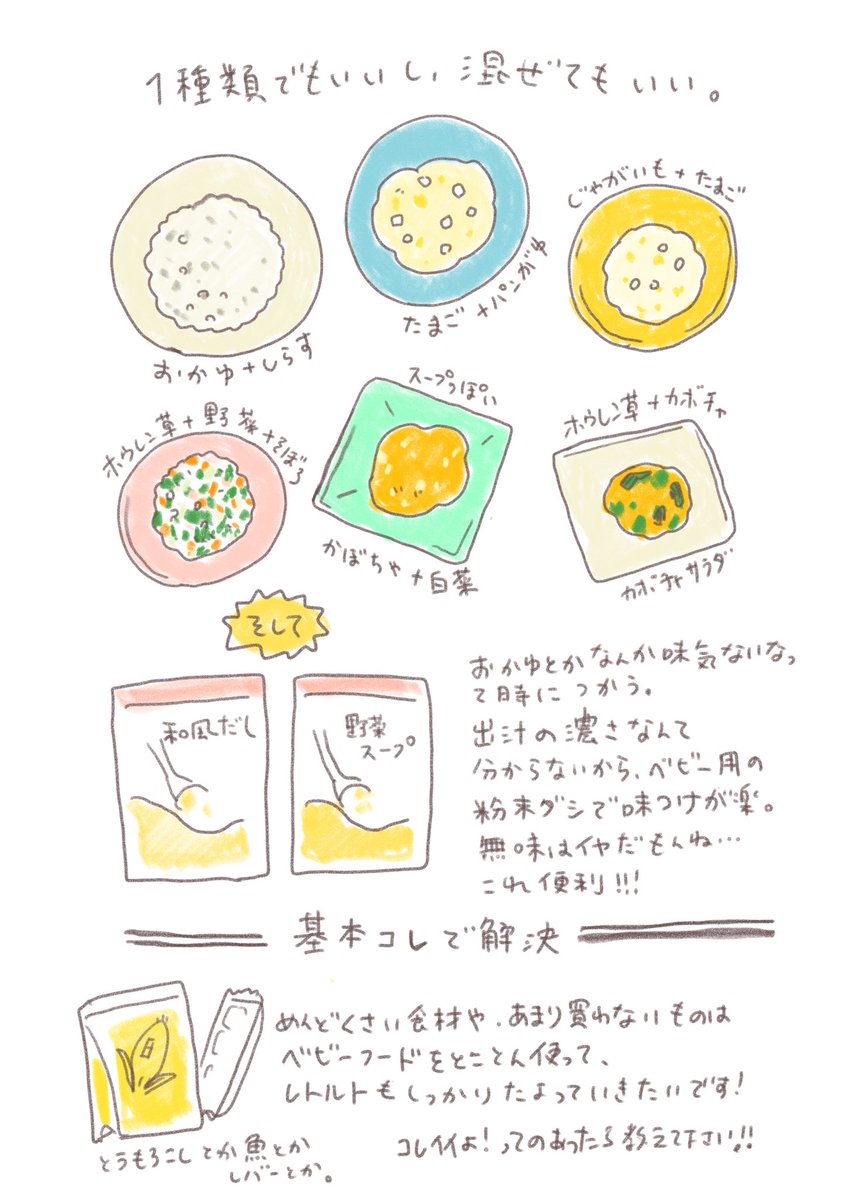 1種類でもいいし、混ぜてもいい。
おかゆ+しらす
たまご+パンがゆ
じゃがいも+たまご
ホウレン草+野菜+そぼろ
スープっぽい
かぼちゃ+白菜
ホウレン草+カボチャ
カボチャサラダ
そして
和風だし
野菜
スープ
おかゆとかなんか味気ないなっ
て時につかう。
出汁の濃さなんて
分からないから、ベビー用の
粉末ダシで味つけが楽。
無味はイヤだもんね…
これ便利!!!
基本コレで解決
めんどくさい食材や、あまり買わないものは
ベビーフードをとことん使って、
レトルトもしっかりたよっていきたいです!
とうもろこしとか魚とか
レバーとか。
コレイイよ!ってのあったら教えて下さい!!